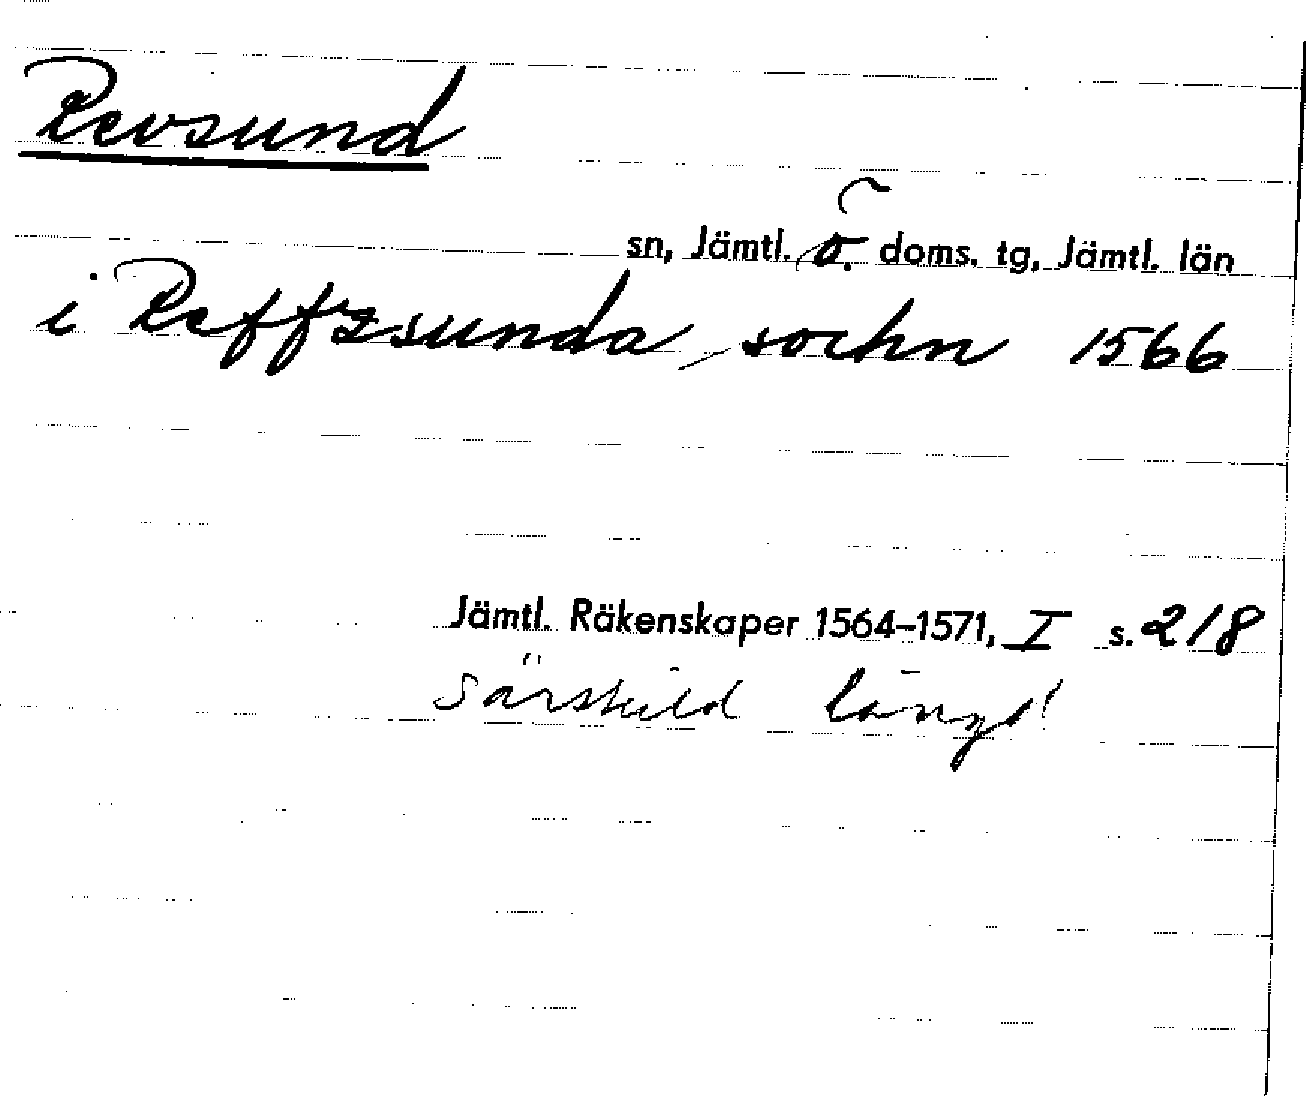 Revsund
sn, Jämtl. ö. doms. tg, Jämtl. län
i Reffzsunda sochn 1566
Jämtl. Räkenskaper 1564–1571, I s. 218
särskild längd!